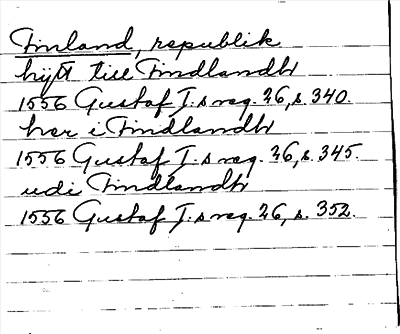 Finland, republik
hijtt till Findlandh
1556 Gustaf I:s reg. 26, s. 340.
her i Findlandh
1556 Gustaf I:s reg. 26, s. 345.
udi Findlandh
1556 Gustaf I:s reg. 26, s. 352.